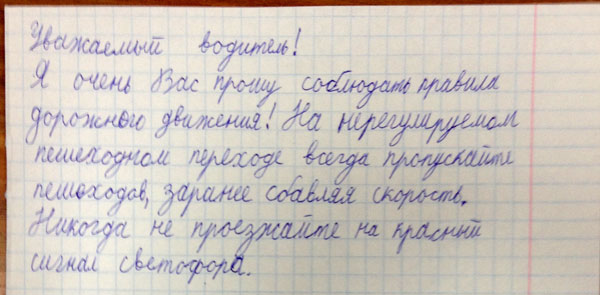 Уважаемый водитель!
Я очень Вас прошу соблюдать правила
дорожного движения! На нерегулируемом
пешеходном переходе всегда пропускайте
пешеходов, заранее сбавляя скорость.
Никогда не проезжайте на красный
сигнал светофора.